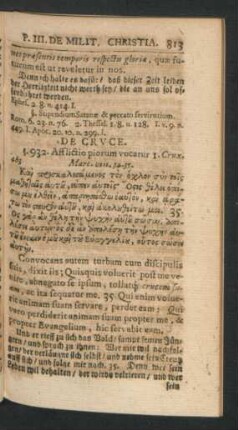 P. III. DE MILIT. CHRISTIA. 813
nes præsentis temporis respectu gloriæ, quæ fu-
tura est ut reveletur in nos.
Denn ich halte es dafür / daß dieser Zeit leiden
der Herrligkeit nicht werth sey / die an uns sol of-
fenbahret werden.
Ephes. 2. 8. v. 414. I.
Rom. 6. 23. n. 76. 2. Thessal. 1. 8. n. 128. I. v. 9. n.
449. I. Apoc. 20. 10. n. 299. I.
DE CRUCE.
§. 932. Afflictio piorum vocatur 1. Crux.
Marc. 34. 35.
Καὶ προσκαλεσάμενος τὸν ὄχλον σὺν τοῖς
μαθηταῖς αὐτοῦ, εἶπεν αὐτοῖς· Ὅστις θέλει ὀπίσω
μου ἐλθεῖν, ἀπαρνησάσθω ἑαυτὸν, καὶ ἀράτω
τὸν σταυρὸν αὐτοῦ, καὶ ἀκολουθείτω μοι. 35.
Ὃς γὰρ ἂν θέλῃ τὴν ψυχὴν αὐτοῦ σῶσαι,
ἀπολέσει αὐτήν· ὃς δ' ἂν ἀπολέσῃ τὴν ψυχὴν αὐ-
τοῦ ἕνεκεν ἐμοῦ καὶ τοῦ εὐαγγελίου, οὗτος σώσει
αὐτήν.
Convocans autem turbam cum discipulis
suis, dixit iis: Quisquis voluerit post me ve-
nire, abnegato se ipsum, tollitque crucem su-
am, ac ita sequatur me. 35. Qui enim volue-
rit animam suam servare, perdet eam; Qui
vero perdiderit animam suam propter me, &
propter Evangelium, hic servabit eam.
Und er rieff zu sich das Volck / sampt seinen Jün-
gern / und sprach zu ihnen: Wer mir wil nachfol-
gen / der verläugne sich selbst / und nehme sein Creutz
auff sich und folge mir nach. 35. Denn wer sein
Leben wil behalten / der wirds verlieren / und wer
sein